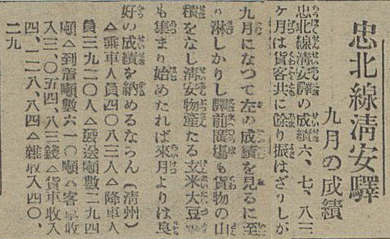 忠北線淸安驛
九月の成績
忠北線淸安驛の成績六、七、八三
ヶ月は貨客共に餘り振はざりしが
九月になつて左の成績を見るに至
り淋しかりし驛前廣場も貨物の山
積をなし淸安物產たる玄米大豆
も集まり始めたれば來月よりは良
好の成績を納めるならん（淸州）
△乘車人員四〇八三人△降車人
員三九二〇人△發送噸數二九四
噸△到著噸數六一〇噸△客車收
入三〇五四、八三錢△貨車收入
四、一二八、八四△雜收入四〇、
二九